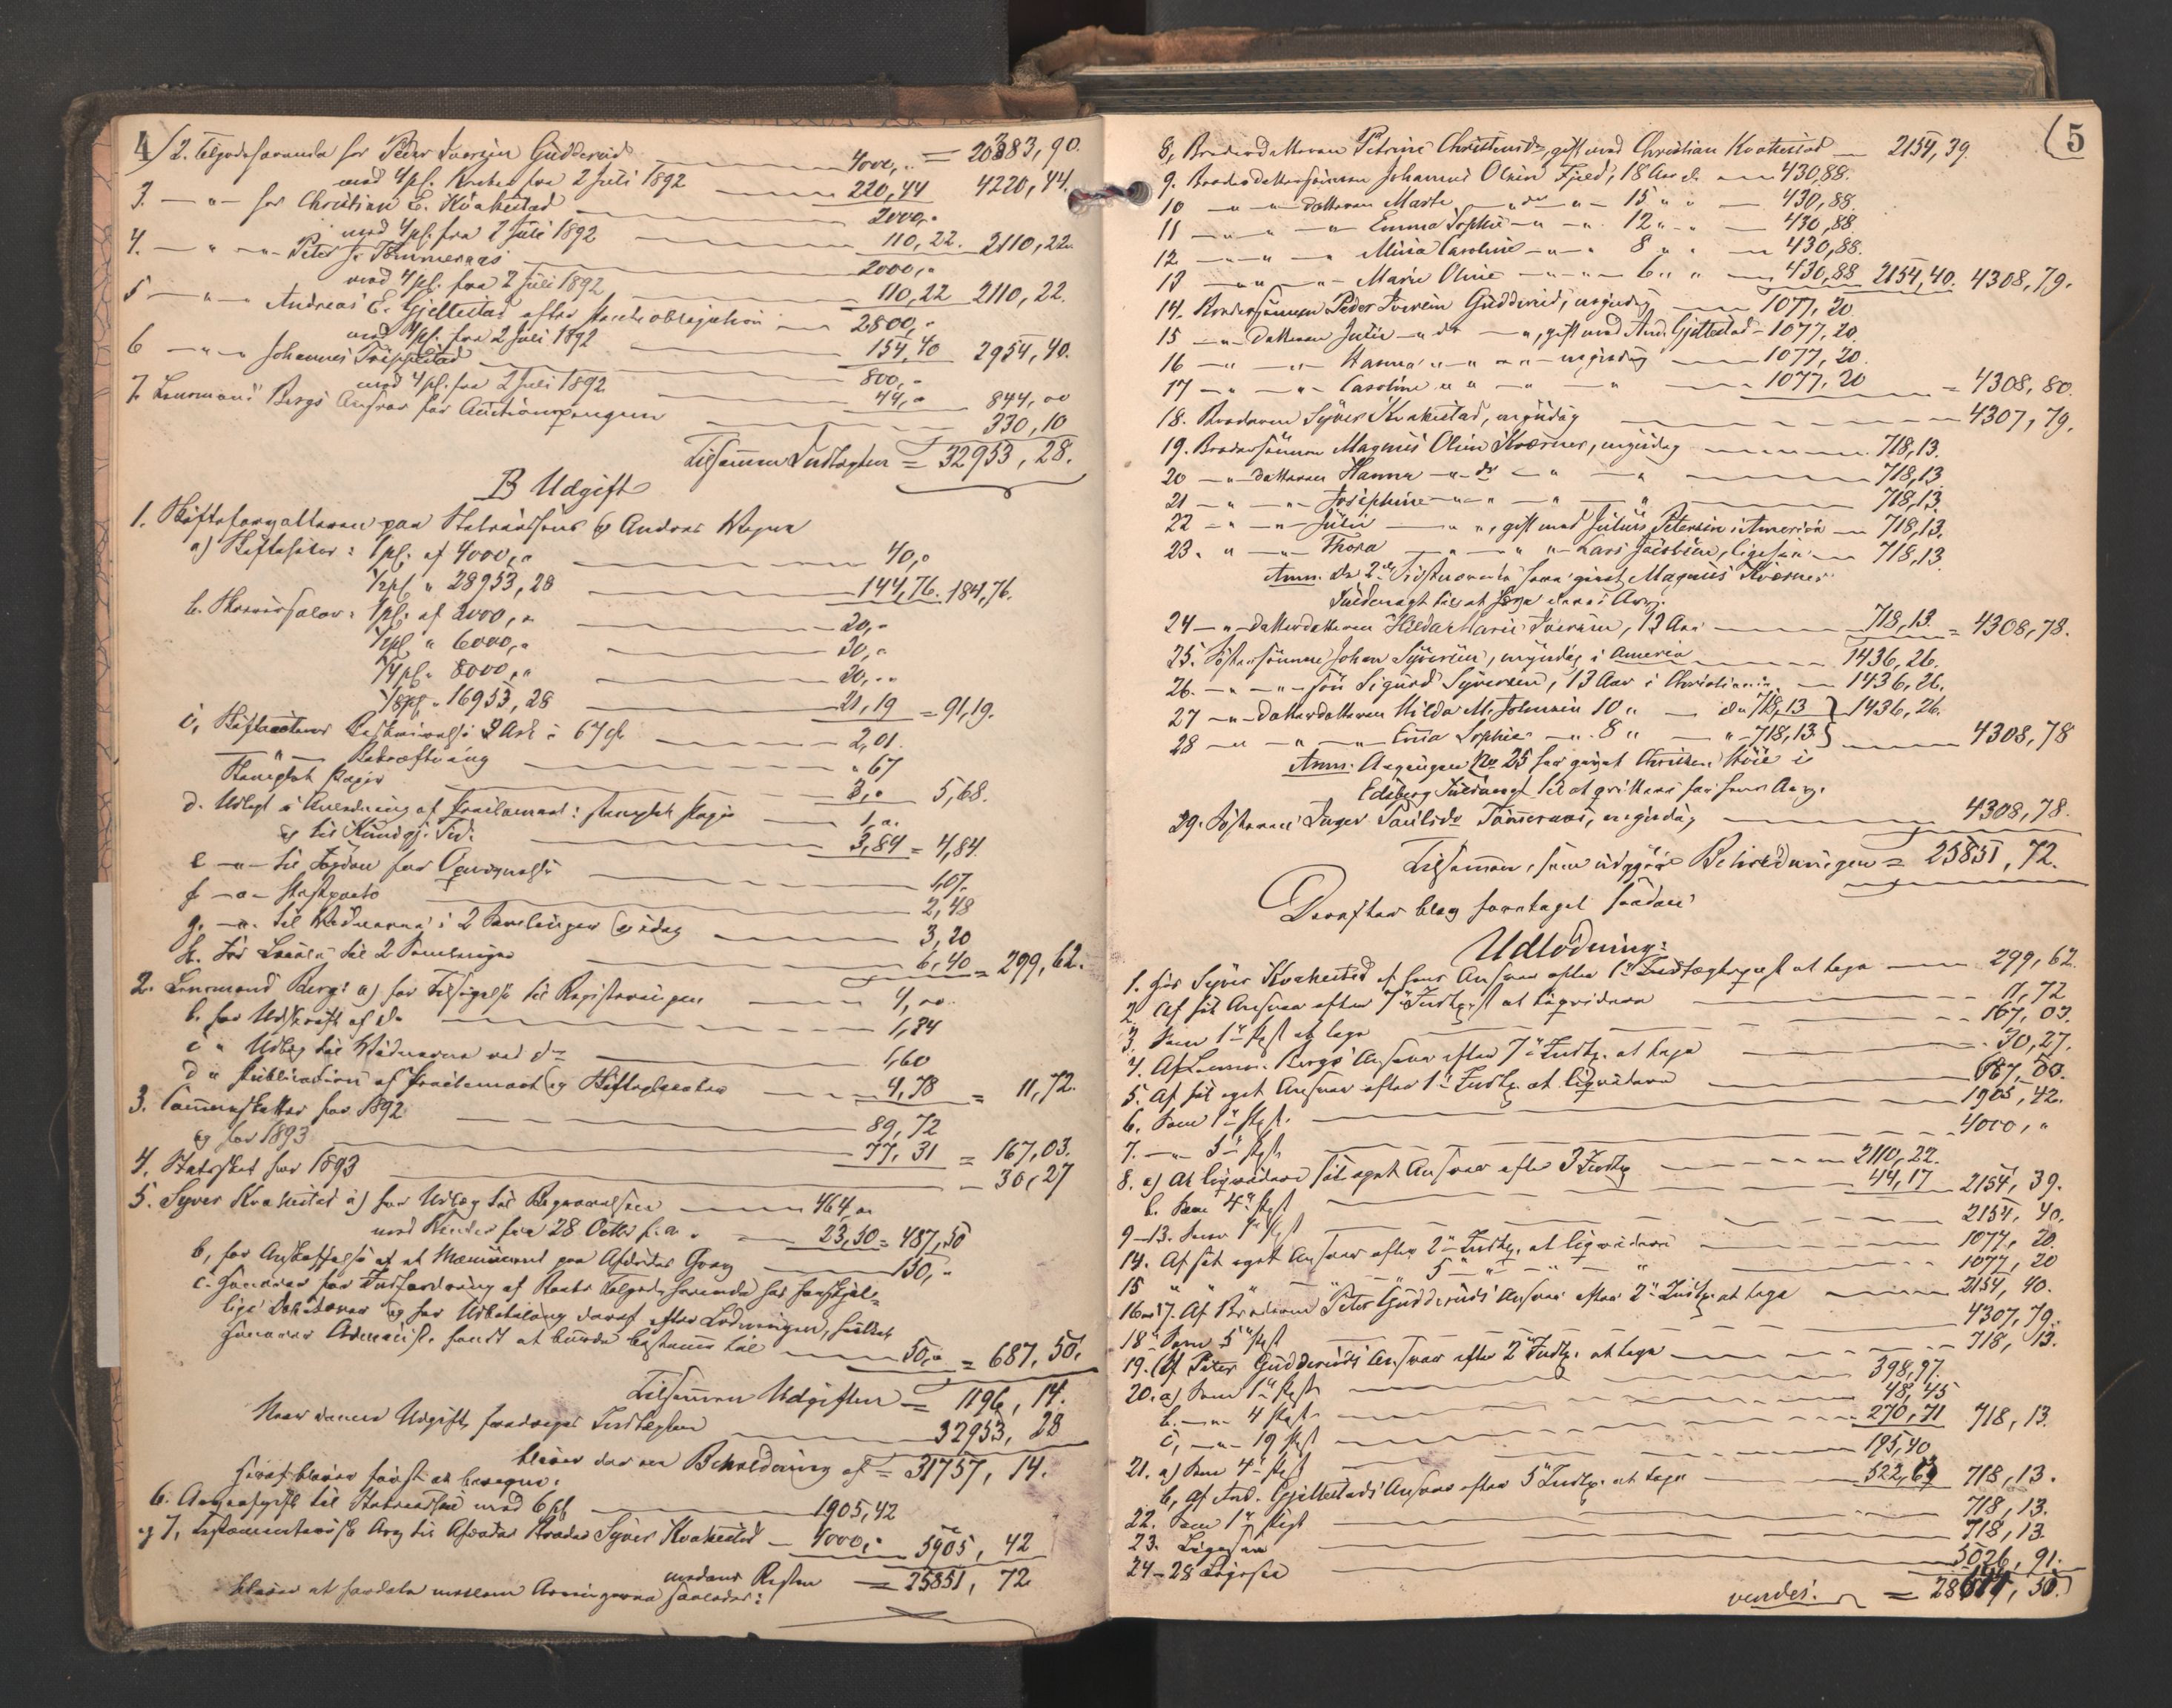 4
2. Tilgodehavende hos Peder Iversen Gudderud — 4000,- = 20383,90.
med 4 pCt. Renter fra 2 Juli 1892 — 220,44 4220,44.
3. — " — hos Christian E. Kvakestad — 2000,-
med 4 pCt. fra 2 Juli 1892 — 110,22. 2110,22
4. — " — " — Peter J. Tømmeraas — 2000,-
med 4 pCt. fra 2 Juli 1892 — 110,22 2110,22.
5 — " — " Andreas E. Gjellestad efter Panteobligation — 2800,-
med 4 pCt. fra 2 Juli 1892 — 154,40 2954,40.
6 — " — " Johannes Trippestad — 800,-
med 4 pCt. fra 2 Juli 1892 — 44,- 844,00
7. Lensmand Bergs Ansvar for Auctionspengene — 330,10
Tilsammen Indtægten = 32953,28.
B Udgift
1. Skifteforvalteren paa Statscassens og Andres Vegne
a) Skiftesalær: 1 pCt. af 4000,- — 40,-
1/2 pCt " 28953,28 — 144,76. 184,76.
b. Skriversalær: 1 pCt. af 2000,- — 20,-
1/2 pCt " 6000,- — 30,-
1/4 pCt " 8000,- — 20,-
1/8 pCt " 16953,28 — 21,19 = 91,19.
c, Skifteactens Beskrivelse 3 Ark à 67 Øre — 2,01.
— " — Bekræftning — " 67
Stemplet Papir — 3,- 5,68.
d. Udlagt i Anledning af Proclamaet: stemplet Papir — 1,-
og til Kundgj. Tid. — 3,84 = 4,84.
e — " — til Fogden for — 1,07.
f — " — Postporto — 2,48
g. — " — til Vidnerne i 2 Samlinger og idag — 3,20
h. for Locale til 2 Samlinger — 6,40 = 299,62.
2. Lensmand Berg: a) for Tilsigelse til Registreringen — 4,00.
b. for Udskrift af do — 1,84
c " Udlæg til Vidnerne ved do — 1,60
d " Publication af Proclamaet og Skiftepladsen — 4,78 = 11,72.
3. Communeskatter for 1892 — 89,72
og for 1893 — 77,31 = 167,03.
4. Statsskat for 1893 — 30,27
5. Syver Kvakestad a) for Udlæg til Begravelsen — 464,00
med Renter fra 28 Octbr f.a. — 23,50 = 487,50
b, for Anskaffelse af et Monument paa Afdødes Grav — 150,-
c. Honorar for Indfordring af Boets Tilgodehavende hos forskjel-
lige Debitorer og for Udbetaling deraf efter Lodningen, hvilket
Honorar fandt at burde bestemme til — 50,- = 687,50.
Tilsammen Udgiften = 1196,14.
Naar denne Udgift fradrages Indtægten — 32953,28
bliver der en Beholdning af = 31757,14.
Heraf bliver først at beregne:
6. Arveafgift til Statscassen med 6 pCt — 1905,42
og 7, Testamentarisk Arv til Afdødes Broder Syver Kvakestad — 4000,- 5905,42
medens Resten = 25851,72
bliver at fordele mellem Arvingerne saaledes:
5
8, Broderdatteren Petrine Christensdr, gift med Christian Kvakestad — 2154,39.
9. Broderdattersønnen Johannes Olsen Fjeld, 18 Aar do — 430,88.
10 — " — datteren Marthe — " do " — 15 " " — 430,88.
11 — " — " — Emma Sophie — " — " 12 " " — 430,88.
12 — " — " — Mina Caroline — " — " 8 " " — 430,88.
13 — " — " — Marie Oline — " — " 6 " " — 430,88 2154,40. 4308,79.
14. Brodersønnen Peder Iversen Gudderud, myndig — 1077,20.
15 — " — datteren Julie — " do — ", gift med And. Gjellestad — 1077,20.
16 — " — " — Hanna " — " — " myndig — 1077,20.
17 — " — " — Caroline " " — " — " — 1077,20 = 4308,80.
18. Broderen Syver Kvakestad, myndig — 4307,79.
19. Brodersønnen Magnus Olsen Kværner, myndig — 718,13.
20 — " — datteren Hanna — " do — " — " — 718,13.
21 — " — " — Josephine — " — " — " — 718,13.
22 — " — " — Julie — " ", gift med Julius Petersen i America — 718,13.
23. " — " — Thora — " — " — Lars Jacobsen, ligesaa — 718,13
Anm. De 2de Sidstnævnte have givet Magnus Kværner
Fuldmagt til at hæve deres Arv.
24 — " — datterdatteren Hilda Marie Iversen, 13 Aar — 718,13. = 4308,78.
25. Søstersønnen Johan Syversen, myndig i America — 1436,26.
26. — " — " — søn Sigurd Syversen, 13 Aar i Christiania — 1436,26.
27 — " — datterdatteren Hilda M. Johnsen 10 " — do 718,13 } 1436,26.
28 — " — " — " — Emma Sophie — " 8 " — " — 718,13 — 4308,78
Anm. Arvingen No 25 har givet Christian Støve i
Edsberg Fuldmagt til at qvittere for hans Arv.
29. Søsteren Inger Paulsdr Tømmeraas, myndig — 4308,78.
Tilsammen, som udgjør Beholdningen = 25851,72.
Derefter blev foretaget saadan
Udlodning:
1. Hos Syver Kvakestad af hans Ansvar efter 1ste Indtægtspost at tage — 299,62.
2. Af sit Ansvar efter 7de Indtpost at liqvidere — 11,72
3. Som 1ste Post at tage — 167,03.
4. Af Lensm. Bergs Ansvar efter 7de Indtp. at tage — 30,27.
5. Af sit eget Ansvar efter 1ste Indtp. at liqvidere — 687,50.
6. Som 1ste Post. — 1905,42.
7. — " — 5te Post — 4000,"
8. a) At liqvidere sit eget Ansvar efter 3 Indtp — 2110,22.
b. Som 4de Post — 44,17 2154,39.
9–13. Som 1ste Post — 2154,40.
14. Af sit eget Ansvar efter 2de Indtp. at liqvidere — 1077,20.
15 " " — " — " — 5te " — " — " — 1077,20
16 og 17. Af Broderen Peter Gudderuds Ansvar efter 2de Indtp at tage — 2154,40.
18. Som 5te Post — 4307,79.
19. Af Peter Gudderuds Ansvar efter 2de Indtp. at tage — 718,13.
20. a) Som 1ste Post — 398,97.
b. — " — 4 Post — 48,45
c, — " — 19 Post — 270,71 718,13.
21. a) Som 4de Post — 195,40
b, Af And. Gjellestads Ansvar efter 5te Indtp. at tage — 522,73 718,13.
22. Som 1ste Post — 718,13.
23. Ligesaa — 718,13
24–28 Ligesaa — 5026,91.
vendes. = 28644,50.